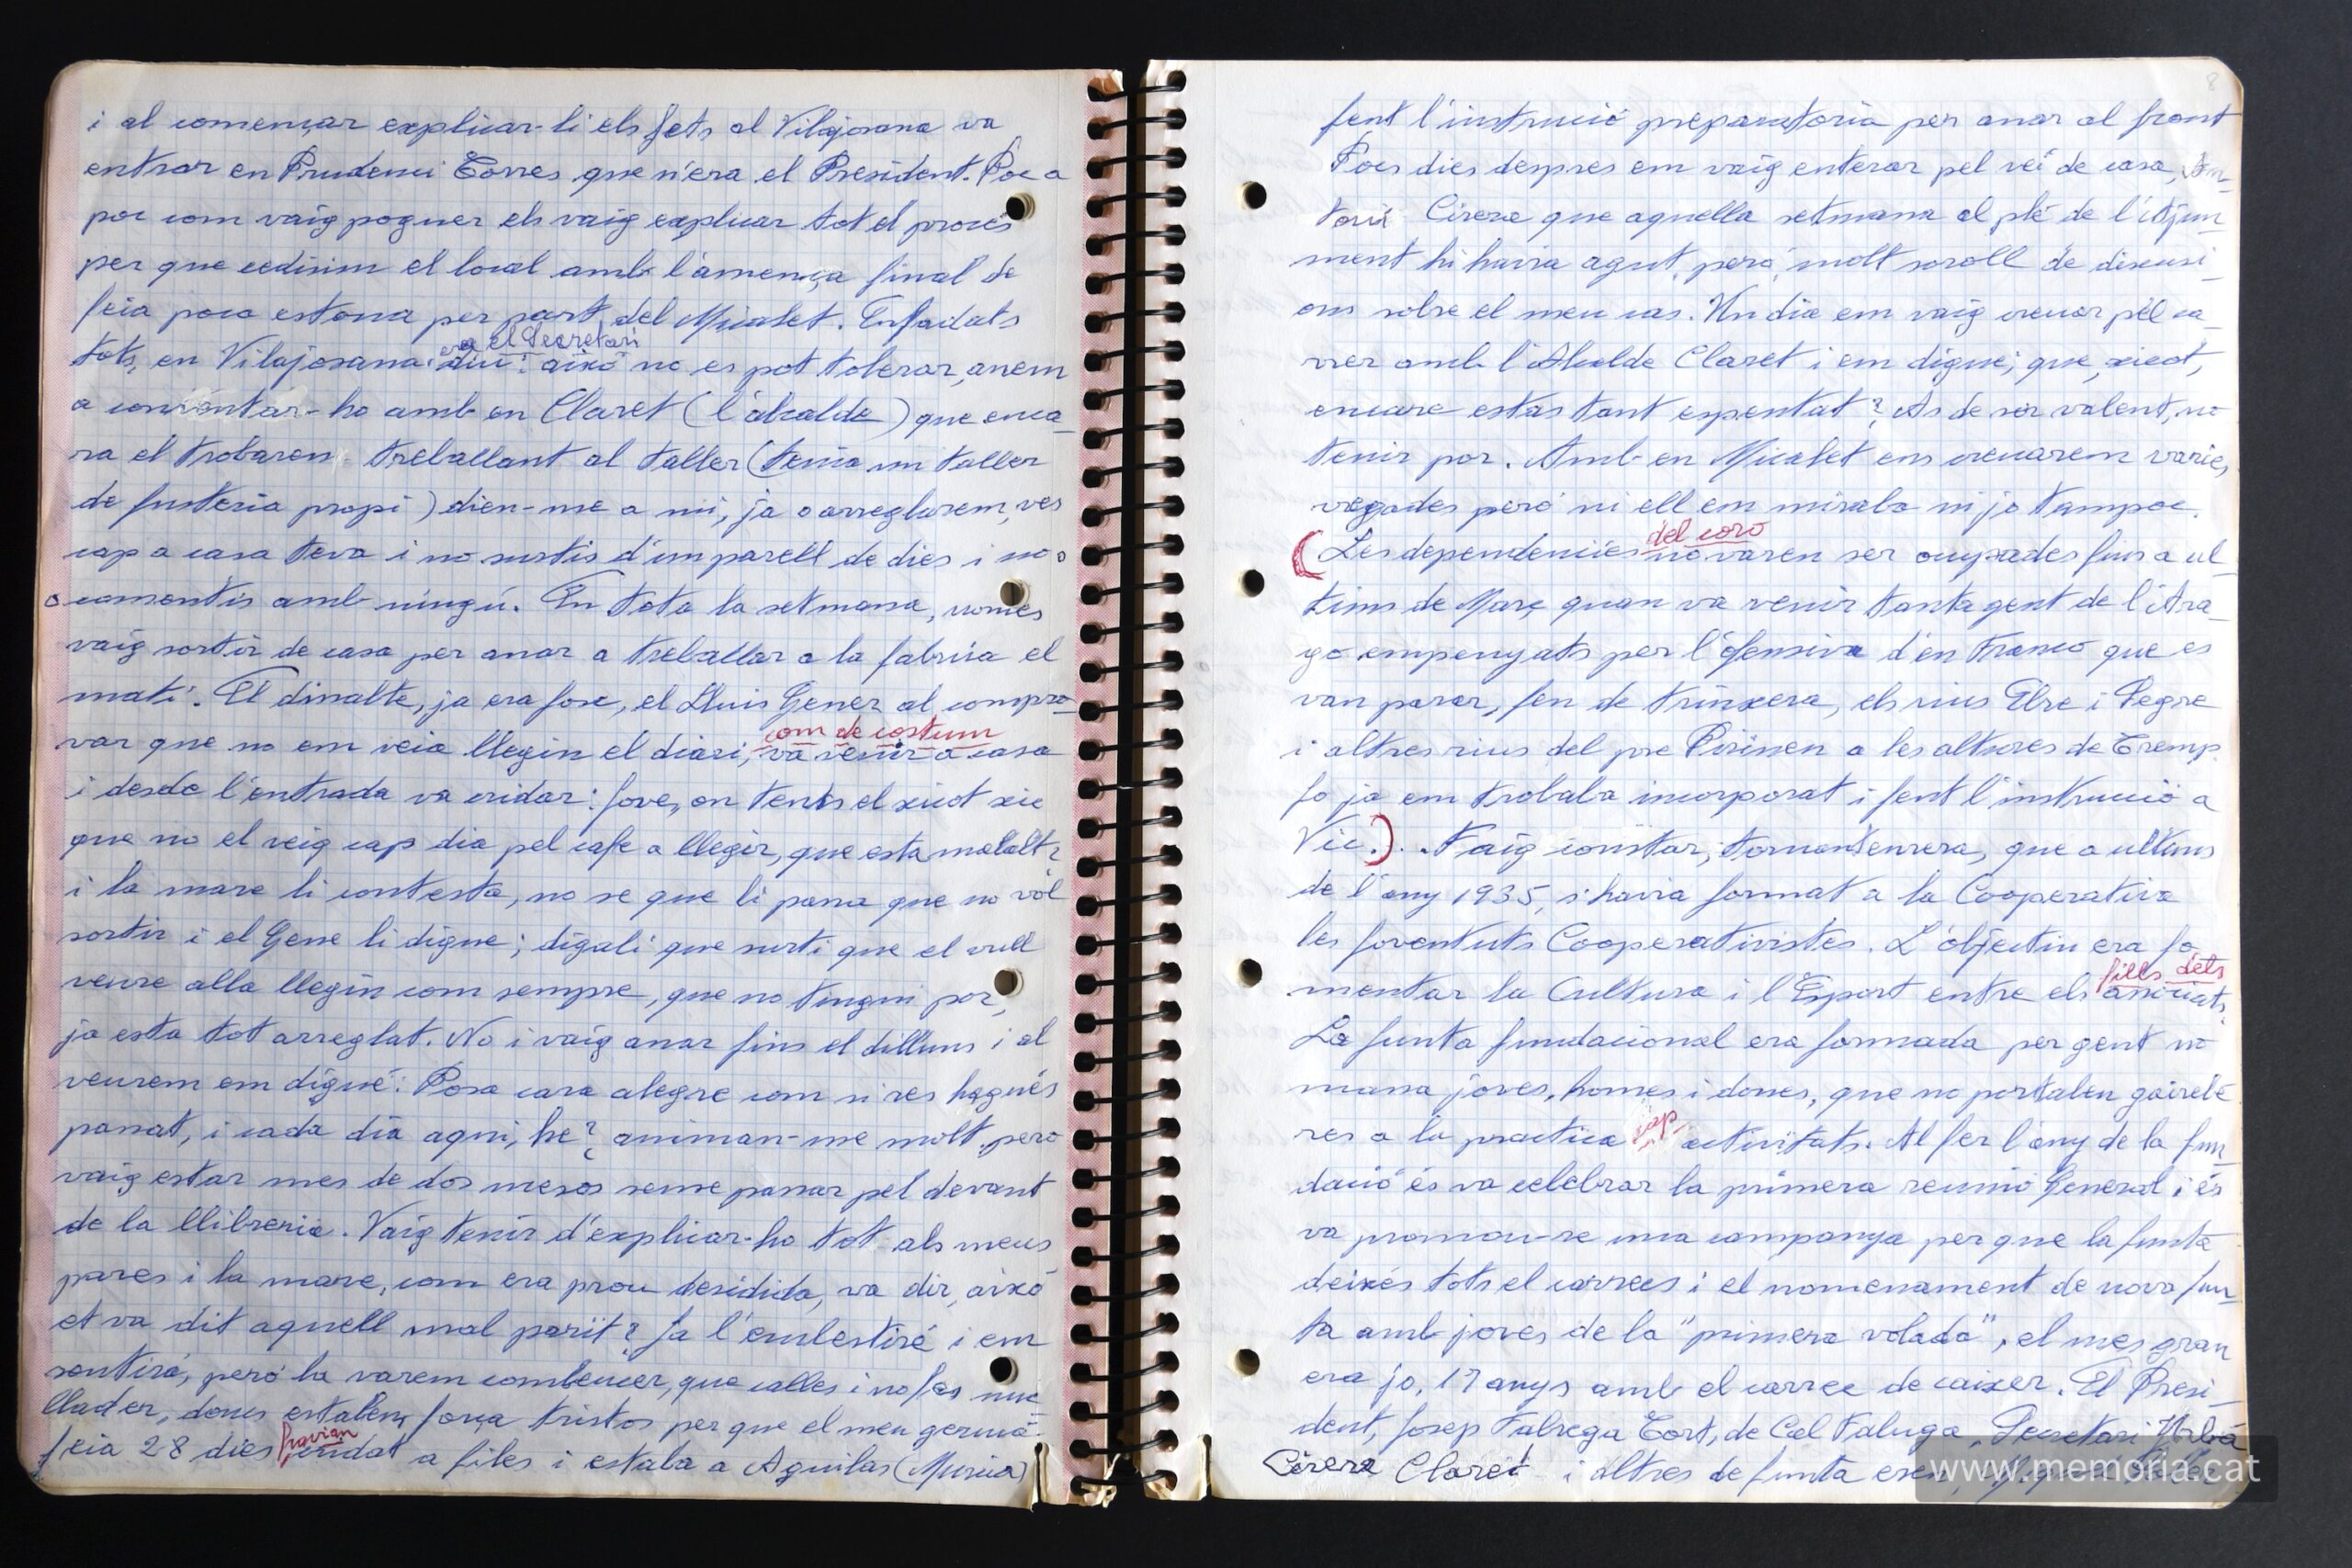 i al començar explicar-li els fets al Vilajosana va
entrar en Prudenci Torres que n'era el President. Poc a
poc com vaig poguer els vaig explicar tot el procés
per que cedissim el local amb l'amença final de
feia poca estona per part del Micalet. Enfadats
era el Secretari
tots, en Vilajosana diu: aixo no es pot tolerar, anem
a comentar-ho amb en Claret (l'alcalde) que enca-
ra el trobarem treballant al taller (tenia un taller
de fusteria propi) dien-me a mi, ja o arreglarem, ves
cap a casa teva i no surtis d'un parell de dies i no
comentis amb ningú. En tota la setmana, nomes
vaig sortir de casa per anar a treballar a la fabrica el
mati. El dissalte, ja era fosc, el Lluis Gener al compro-
com de costum
var que no em veia llegin el diari, va venir a casa
i desde l'entrada va cridar: Jove, on tenis el xicot xic
que no el veig cap dia pel cafe a llegir, que esta malalt?
i la mare li contesta, no se que li passa que no vol
sortir i el Gene li digue; digali que surti que el vull
veure alla llegin com sempre, que no tingui por,
ja esta tot arreglat. No i vaig anar fins el dilluns i al
veurem em digué: Posa cara alegre com si res hagués
passat, i cada dia aqui, he? animan-me molt, pero
vaig estar mes de dos mesos sense passar pel devant
de la llibreria. Vaig tenir d'explicar-ho tot als meus
pares i la mare, com era prou desidida, va dir, aixó
et va dit aquell mal parit? Ja l'embestiré i em
sentirá, peró la varem combencer, que calles i no fes
llader, doncs estaben força tristos per que el meu germá
havian
feia 28 dies cridat a files i estaba a Aguilas (Murcia)
8
fent l'instrució preparatoria per anar al front
Pocs dies despres em vaig enterar pel veí de casa, An-
toni Cirera que aquella setmana al ple de l'Ajun-
ment hi havia agut, peró, molt soroll de discusi-
ons sobre el meu cas. Un dia em vaig creuar pel ca-
rrer amb l'Alcalde Claret i em digué; que, xicot,
encare estas tant espentat? As de ser valent, no
tenir por. Amb en Micalet ens creuarem varies
vegades peró ni ell em miraba ni jo tampoc.
del coro
(Les dependencies no varen ser ocupades fins a ul-
tims de Març quan va venir tanta gent de l'Ara-
gó empenyats per l'ofensiva d'en Franco que es
van parar, fen de trinxera, els rius Ebre i Segre
i altres rius del pre Pirineu a les altures de Tremp.
Jo ja em trobaba incorporat i fent l'instrucció a
Vic.). Faig constar, tornant enrera, que a ultims
de l'any 1935, s'havia format a la Cooperativa
les Joventuts Cooperativistes. L'objectiu era fo-
fills dels
mentar la Cultura i l'Esport entre els associats.
La Junta fundacional era formada per gent no
massa joves, homes i dones, que no portaben gairebé
cap
res a la practica activitats. Al fer l'any de la fun-
dació és va celebrar la primera reunió General i és
va promou-re una campanya per que la Junta
deixés tots el carrecs i el nomenament de nova Jun-
ta amb joves de la "primera volada", el mes gran
era jo, 17 anys amb el carrec de caixer. El Presi-
dent, Josep Fabrega Tort, de Cal Faluga, Secretari Urbá
Cirera Claret i altres de Junta eren,
www.memoria.cat